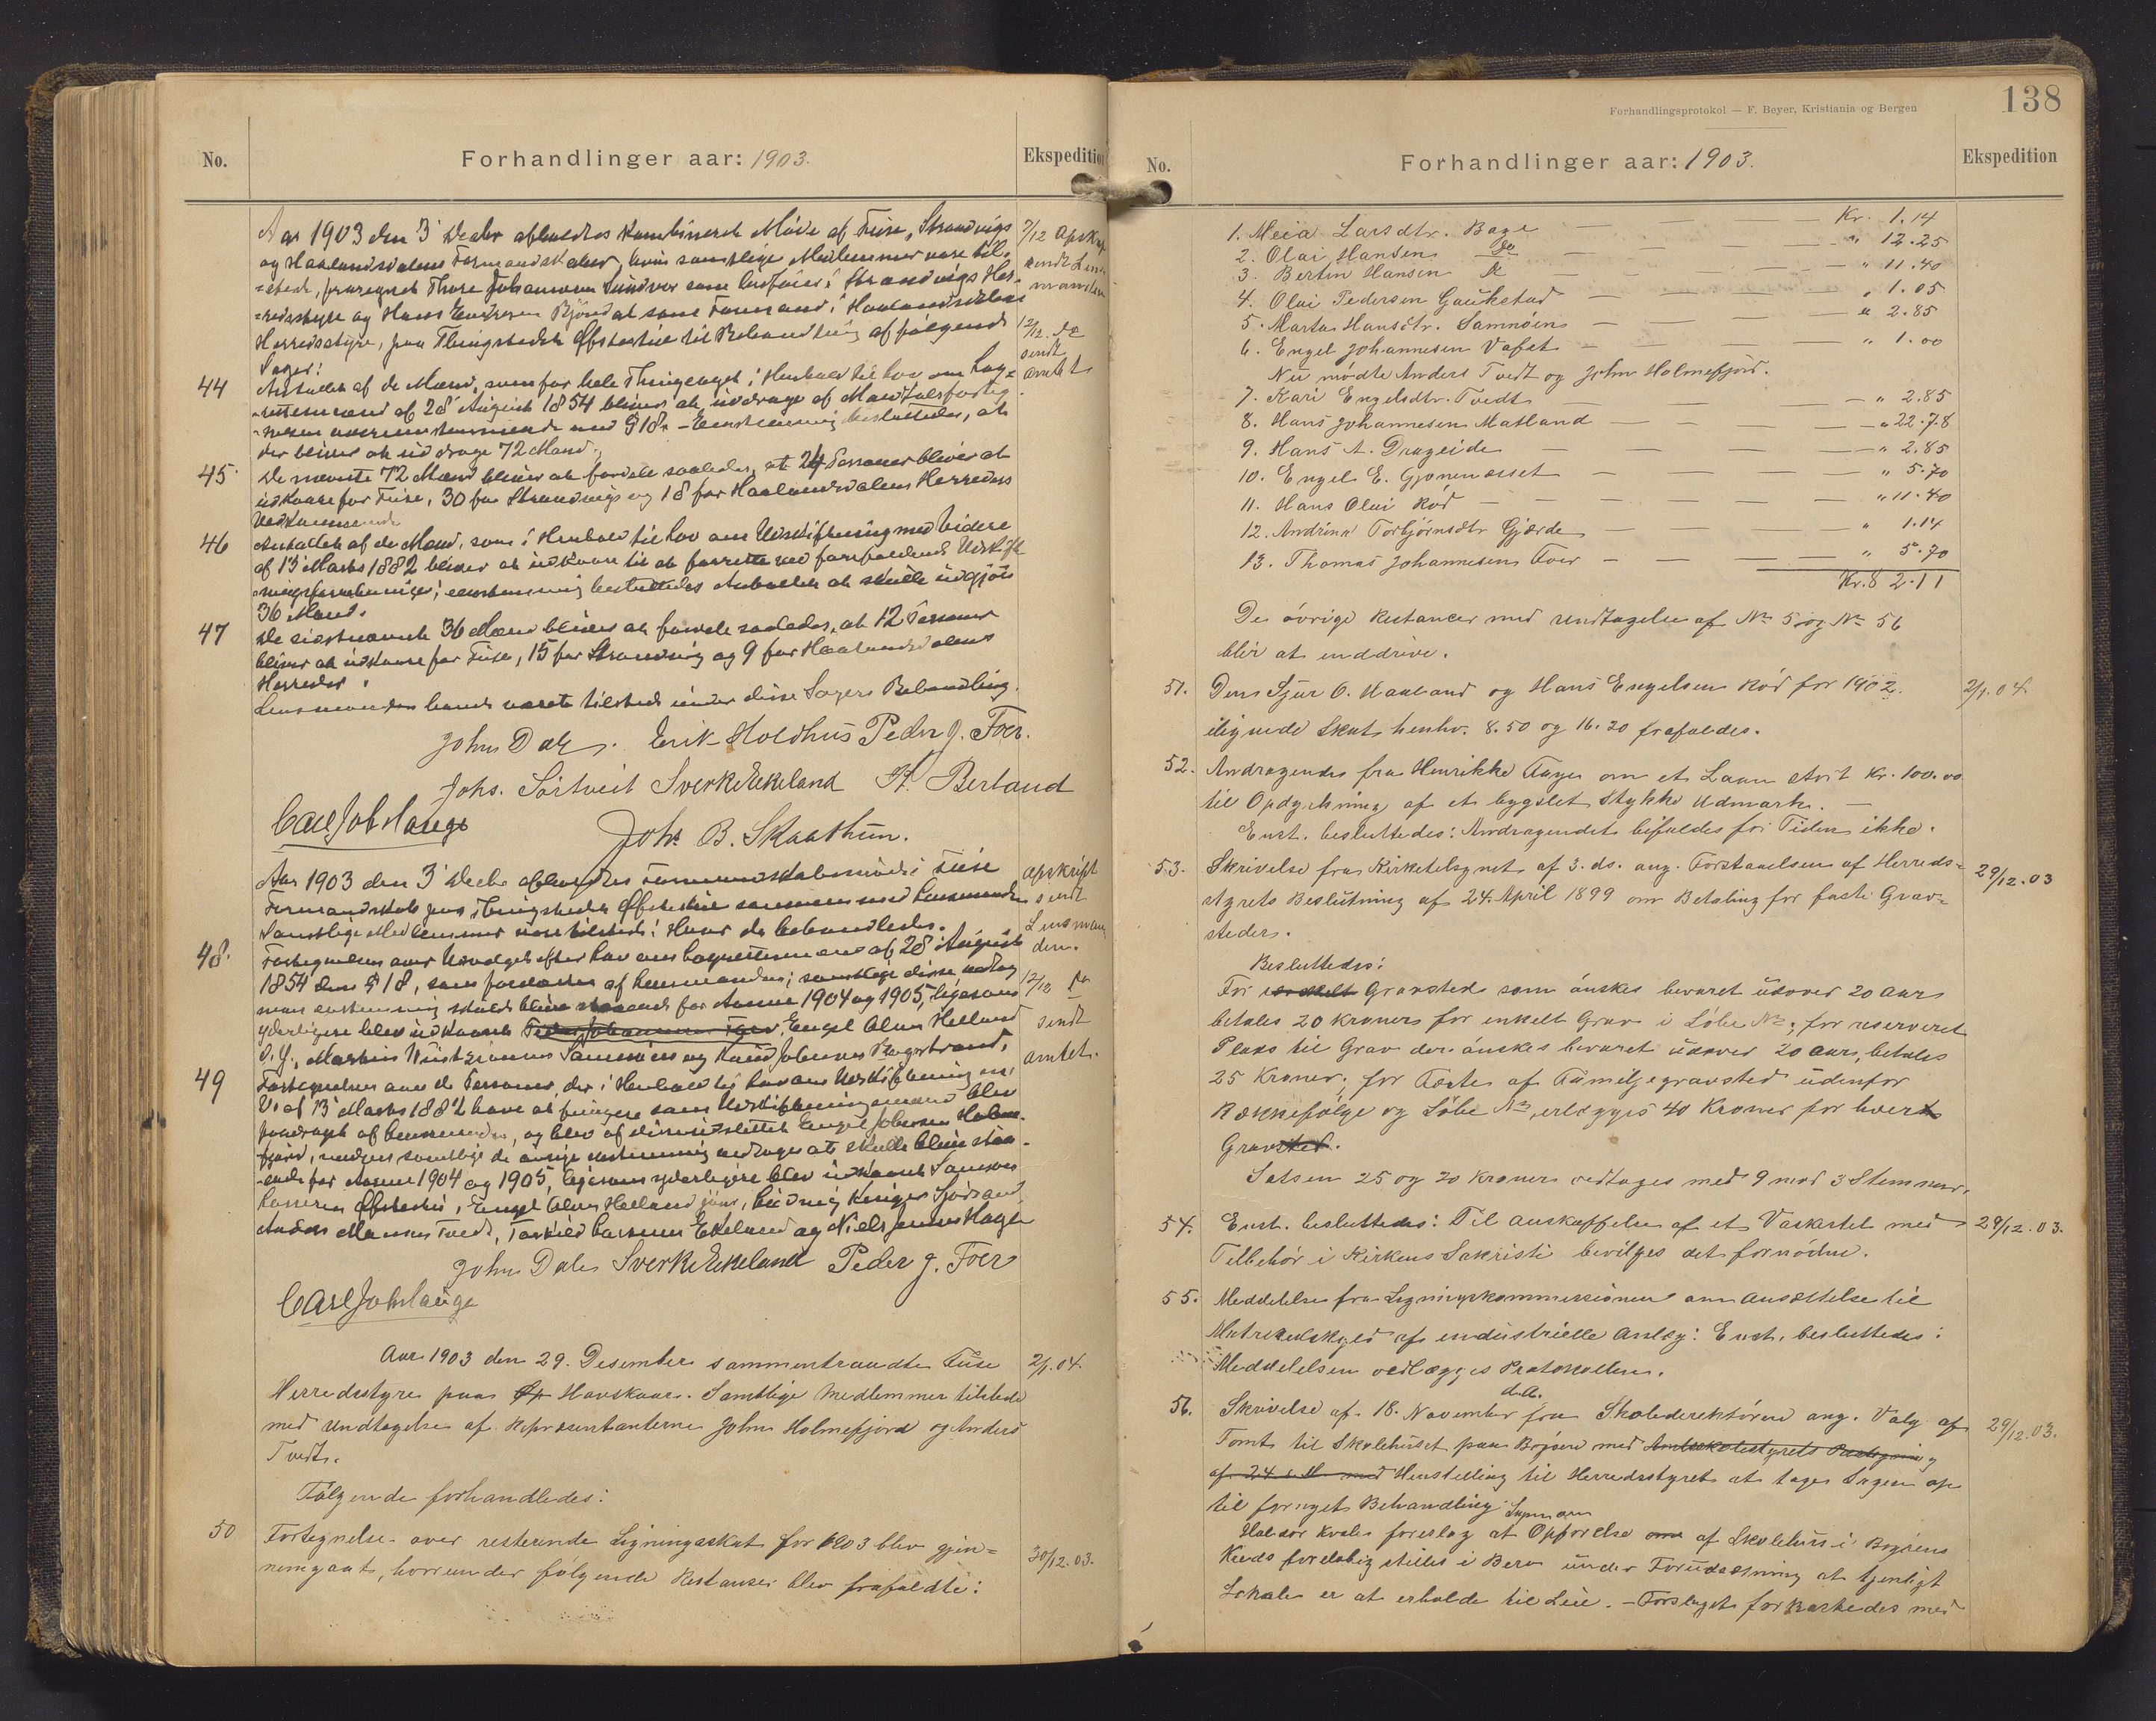 No.
Forhandlinger aar: 1903.
Ekspedition
Aar 1903 den 3 Decbr afholdtes kombineret Møde af Fuse, Strandvigs
og Haalandsdalens Formandskaber, hvis samtlige Medlemmer vare til-
=stede, fraregnet Thore Johannesen Sundvor som i Strandvigs Her-
=redsstyre og Hans Bjøndal som Formand i Haalandsdalens
Herredsstyre, paa Thingstedet Øfstestue til Behandling af følgende
Sager:
7/12 Apskr
sendt Lens
manden
12/12 do
sendt
amtet
44 Antallet af de Mænd, som for hele Thinglaget i Henhold til Lov om Lag=
-rettemænd af 28 August 1854 bliver at uddrage af Mandtalsforteg-
-nelsen overensstemmende med § 18. - Eenstemmig besluttedes, at
der bliver at uddrage 72 Mænd.
45 De nævnte 72 Mænd bliver at fordele saaledes, at 24 Personer bliver at
udkaare for Fuse, 30 for Strandvigs og 18 for Haalandsdalens Herreders
Vedkommende
46 Antallet af de Mænd, som i Henhold til Lov om Udskiftning med Videre
af 13 Marts 1882 bliver at udkaare til at forrette ved forefaldende Udskift-
ningsforretninger; eenstemmig besluttedes Antallet at skulle udgjøre
36 Mænd.
47 De sidstnævnte 36 Mænd bliver at fordele saaledes, at 12 Personer
bliver at udkaare for Fuse, 15 for Strandvig og 9 for Haalandsdalens
Herreder.
Lensmanden havde været tilstede under disse Sagers Behandling.
John Dale. Erik Holdhus Peder J. Foer.
Johs. Sørtveit Sverke Ekeland H. Berland
Carl Joh Hauge Johs B. Skaathun.
Aar 1903 den 3 Decbr afholdtes Formandskabsmøde i Fuse
Formandskab paa Thingstedet Øfstestue sammen med Lensmanden
Samtlige Medlemmer vare tilstede: Hvor da behandledes.
apskrift
sendt
Lensman
den.
12/12 do
sendt
amtet.
48. Fortegnelsen over Udvalget efter Lov om Lagrettemænd af 28 August
1854 dens § 18, som foredroges af Lensmanden; samtlige disse vedtog
man enstemmig skulde blive staaende for Aarene 1904 og 1905, ligesom
yderligere blev udkaaret Peder Johannesen Foer, Engel Olsen Helland
d. y., Martin Samnøen og Knud Johannes Bogstrand.
49 Fortegnelsen over de Personer, der i Henhold til Lov om Udskiftning m.
V. af 13 Marts 1882 have at fungere som Udskiftningsmænd blev
foredraget af Lensmanden, og blev af denne udslettet Engel Johnsen Holme-
fjord, medens samtlige de øvrige enstemmig vedtoges at skulle blive staa-
-ende for Aarene 1904 og 1905, ligesom yderligere blev udkaaret Samson
Larsen Øfstestue, Engel Olsen Helland Ludvig Sjøsand,
Anders Monsen Tvedt, Torkild Larssen Ekeland og Niels Hagle
John Dale Sverke Ekeland Peder J. Foer
Carl Joh Hauge
Aar 1903 den 29. Desember sammentraadte Fuse
Herredsstyre paa Havskaar. Samtlige Medlemmer tilstede
med Undtagelse af Repræsentanterne John Holmefjord og Anders
Tvedt.
2/1. 04.
Følgende forhandledes:
50 Fortegnelse over resterende Ligningsskat for 1903 blev gjen=
nemgaat, hvorunder følgende Restanser blev frafaldte:
30/12. 03.
138
Forhandlingsprotokol — F. Beyer, Kristiania og Bergen
No.
Forhandlinger aar: 1903.
Ekspedition
1. Meia Larsdtr. Bage Kr. 1.14
2. Olai Hansen do " 12.25
3. Bertin Hansen do " 11.40
4. Olai Pedersen Gaukstad " 1.05
5. Marta Hansdtr. Samnøen " 2.85
6. Engel Johannesen Vafet " 1.00
Nu mødte Anders Tvedt og John Holmefjord.
7. Kari Engelsdtr. Tvedt " 2.85
8. Hans Johannesen Matland " 22.78
9. Hans A. Drageide " 2.85
10. Engel E. Gjønnesset " 5.70
11. Hans Olai Rød " 11.40
12. Andrina Torbjørnsdtr Gjærde " 1.14
13. Thomas Johannesen Foer " 5.70
Kr. 82.11
De øvrige Restancer med Undtagelse af No 5 og No 56
blir at inddrive.
51. Den Sjur O. Haaland og Hans Engelsen Rød for 1902
ilignede Skat henhv. 8.50 og 16.20 frafaldes.
2/1. 04.
52. Andragende fra Henrikke om et Laan stort Kr. 100.00
til Opdyrkning af et bygslet Stykke Udmark. —
Enst. besluttedes: Andragendet bifaldes for Tiden ikke.
53. Skrivelse fra Kirketilsynet af 3. ds. ang. Forstaaelsen af Herreds=
styrets Beslutning af 24. April 1899 om Betaling for faste Grav=
steder.
29/12. 03
Besluttedes:
For Gravsted som ønskes bevaret udover 20 Aar
betales 20 Kroner for enkelt Grav i Løbe No; for reserveret
Plads til Grav der ønskes bevaret udover 20 aar, betales
25 Kroner; for Fæste af Familjegravsted udenfor
Rækkefølge og Løbe No erlægges 40 Kroner for hver
Gravsted.
Satsen 25 og 20 Kroner vedtoges med 9 mod 3 Stemmer.
54. Enst. besluttedes: Til Anskaffelse af et Vaskestel med
Tilbehør i Kirkens Sakristi bevilges det fornødne.
29/12. 03.
55. Meddelelse fra Ligningskommissionen om Ansættelse til
Matrikulskyld af industrielle Anlæg: Enst. besluttedes:
Meddelelsen vedlægges Protokollen.
56. Skrivelse af 18. November d.A. fra Skoledirektøren ang. Valg af
Tomt til Skolehuset paa Bøjoen med Amtsskolestyrets
af 24 s. M. med Henstilling til Herredsstyret at tage Sagen op
til fornyet Behandling
29/12. 03.
Haldor Kvale foreslog at Opførelse af Skolehus i Bøjoens
Kreds foreløbig stilles i Bero under Forudsætning at tjenligt
Lokale er at erholde til Leie. - Forslaget forkastedes med